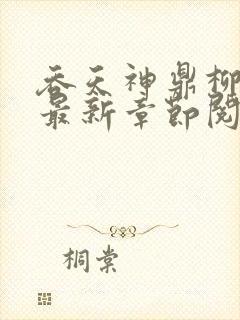 吞天神鼎柳
最新章节阅
桐棠